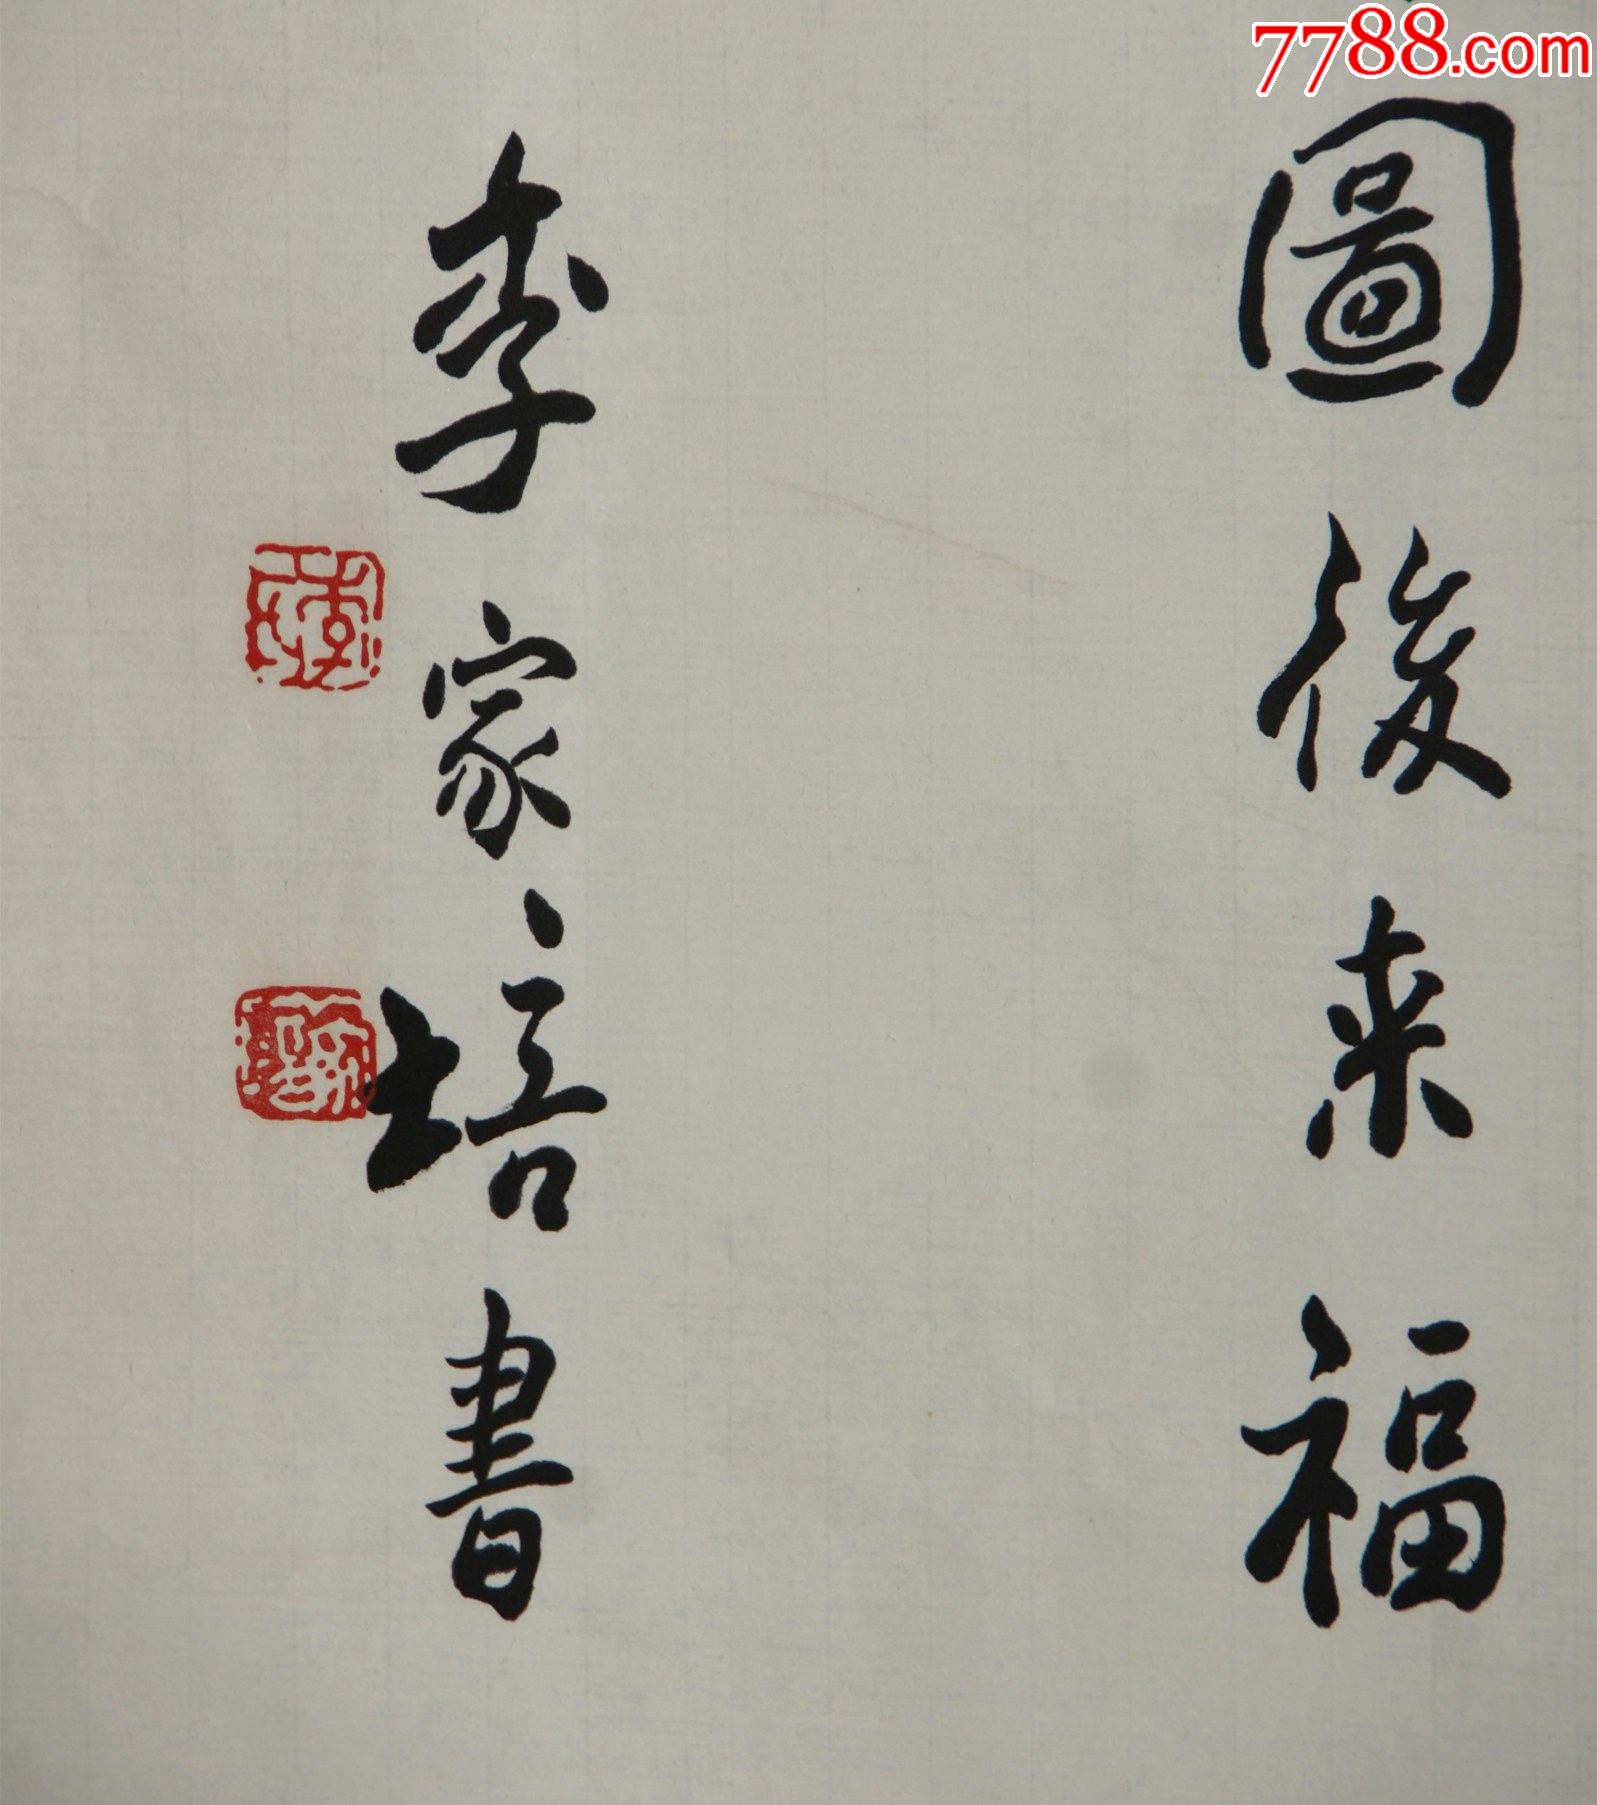 7788.com
圖後来福
李家培書